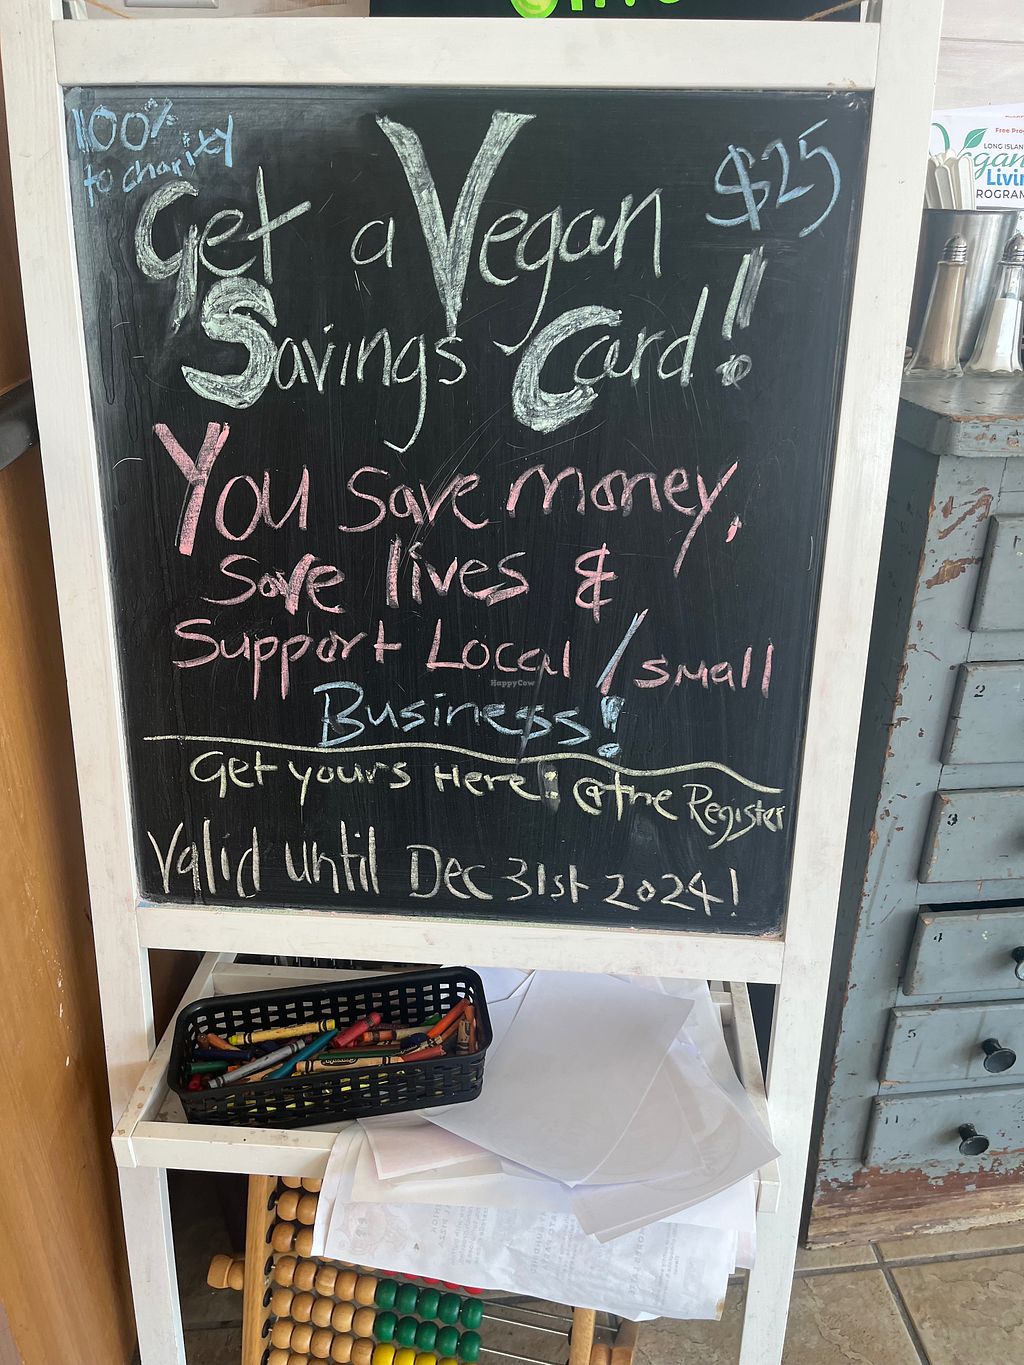 100% to charity
$25
Get a Vegan
Savings Card!
You save money,
save lives &
Support Local / small
Business!
Get yours Here: @the Register
Valid until Dec 31st 2024!
HappyCow
Free Pro
LONG ISLAN
Vegan
Livin
ROGRAM
2
3
4
5